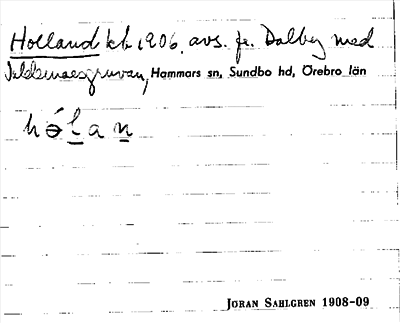 Holland kb 1906. avs. fr. Dalby med
Hammars sn, Sundbo hd, Örebro län
hó̵lan
JÖRAN SAHLGREN 1908-09